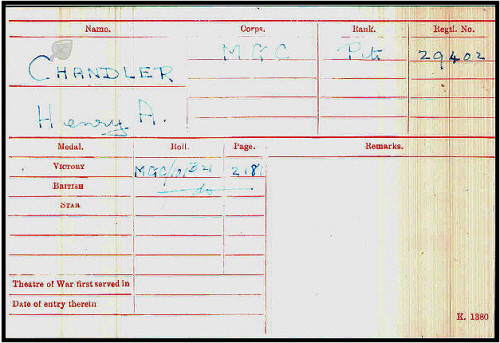 Name. Corps. Rank. Regtl. No.
CHANDLER M.G.C Pte 29402
Henry A.
Medal. Roll. Page. Remarks.
VICTORY
BRITISH do
STAR
Theatre of War first served in
Date of entry therein
K. 1380